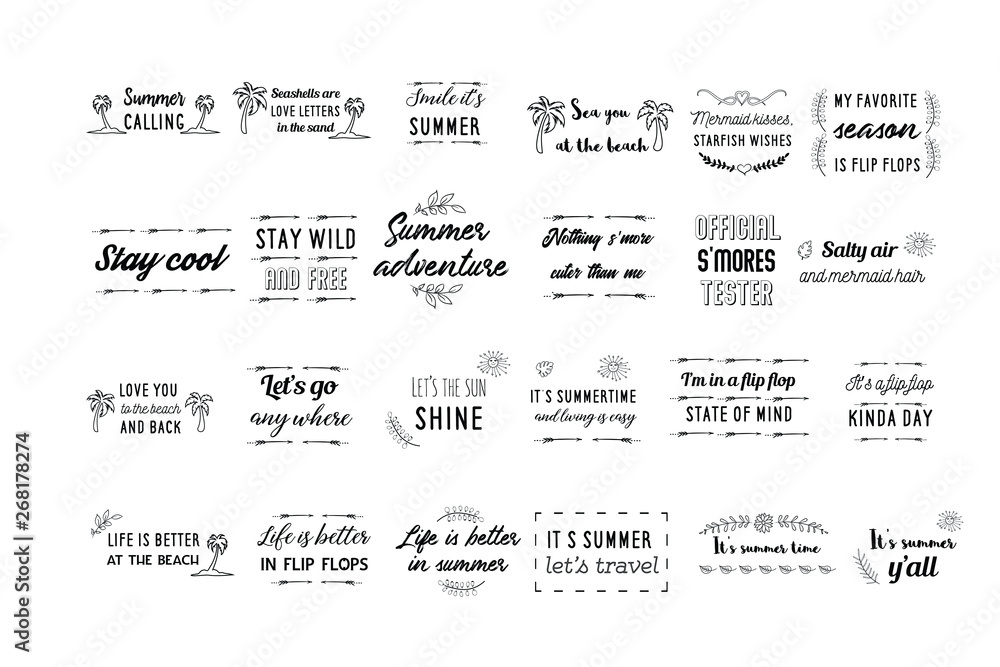 Summer
CALLING
Seashells are
LOVE LETTERS
in the sand
Smile it's
SUMMER
Sea you
at the beach
Mermaid kisses,
STARFISH WISHES
MY FAVORITE
season
IS FLIP FLOPS
Stay cool
STAY WILD
AND FREE
Summer
adventure
Nothing s'more
cuter than me
OFFICIAL
S'MORES
TESTER
Salty air
and mermaid hair
LOVE YOU
to the beach
AND BACK
Let's go
any where
LET'S THE SUN
SHINE
IT'S SUMMERTIME
and living is easy
I'm in a flip flop
STATE OF MIND
It's a flip flop
KINDA DAY
LIFE IS BETTER
AT THE BEACH
Life is better
IN FLIP FLOPS
Life is better
in summer
IT S SUMMER
let's travel
It's summer time
It's summer
y'all
Adobe Stock | #268178274